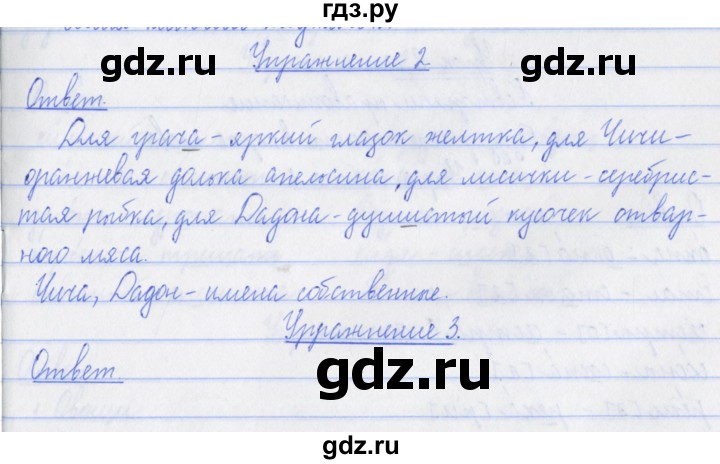 гдз.ру
Упражнение 2
Ответ.
Для грача – яркий глазок желтка, для Чичи –
оранжевая долька апельсина, для лисички – серебрис-
тая рыбка, для Дадона – душистый кусочек отвар-
ного мяса.
Чича, Дадон – имена собственные.
Упражнение 3.
Ответ.
gdz.ru
gdz.ru
gdz.ru
gdz.ru
gdz.ru